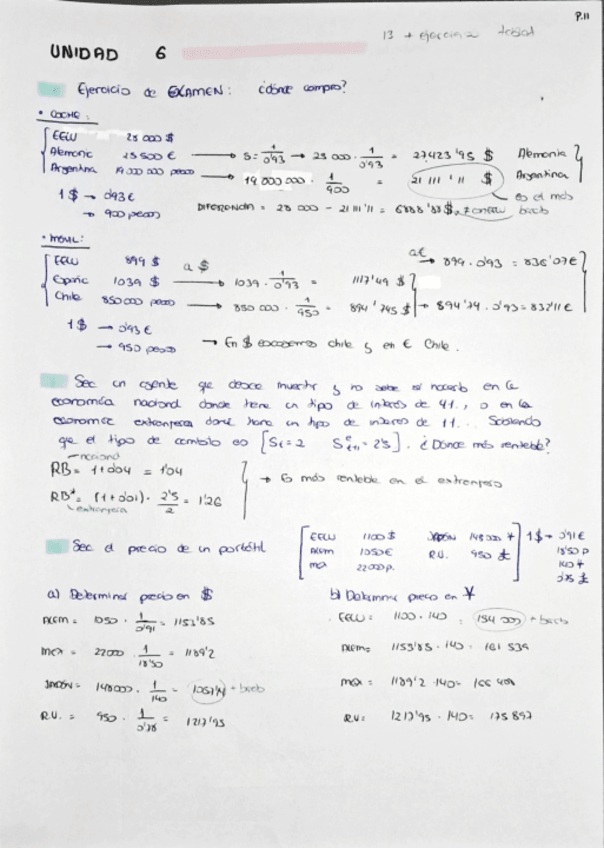 P.11
13 + ejercicio
UNIDAD 6
Ejercicio de EXAMEN: ¿dónde compro?
• COCHE:
EEUU 28 000 $
Alemania 25 500 €
Argentina 19 000 000 pesos
1$ → 0'93 €
→ 900 pesos
19.000.000 · 1/900 = 21 111'11 $ Argentina
Alemania
es el más barato
DIFERENCIA = 28 000 - 21 111'11 = 6888'88 $
• MÓVIL:
EEUU 899 $
España 1039 $
Chile 850000 pesos
a $
→ 1039 · 1/0'93 = 1117'49 $
→ 850 000 · 1/950 = 894'745 $
a €
→ 899 · 0'93 = 836'07 €
→ 894'74 · 0'93 = 832'11 €
1$ → 0'93 €
→ 950 pesos
→ En $ escogemos Chile y en € Chile.
Sea un agente que desea invertir y no sabe si hacerlo en la
economía nacional donde tiene un tipo de interés de 4%, o en la
economía extranjera donde tiene un tipo de interés de 1%. Sabiendo
que el tipo de cambio es [St = 2 Sᵉt+1 = 2'5]. ¿Dónde más rentable?
nacional
RB = 1 + 0'04 = 1'04
RB* = (1 + 0'01) · 2'5/2 = 1'26
extranjera
→ Es más rentable en el extranjero
Sea el precio de un portátil
EEUU 1100 $ JAPÓN 148000 ¥
ALEM 1050 € R.U. 950 £
MEX 22000 p.
1$ → 0'91 €
18'50 p
140 ¥
0'78 £
a) Determinar precio en $
ALEM = 1050 · 1/0'91 = 1153'85
MEX = 22000 · 1/18'50 = 1189'2
JAPÓN = 148000 · 1/140 = 1057'14 + barato
R.U. = 950 · 1/0'78 = 1217'95
b) Determinar precio en ¥
EEUU = 1100 · 140 = 154 000 + barato
ALEM = 1153'85 · 140 = 161 539
MEX = 1189'2 · 140 =
R.U = 1217'95 · 140 =